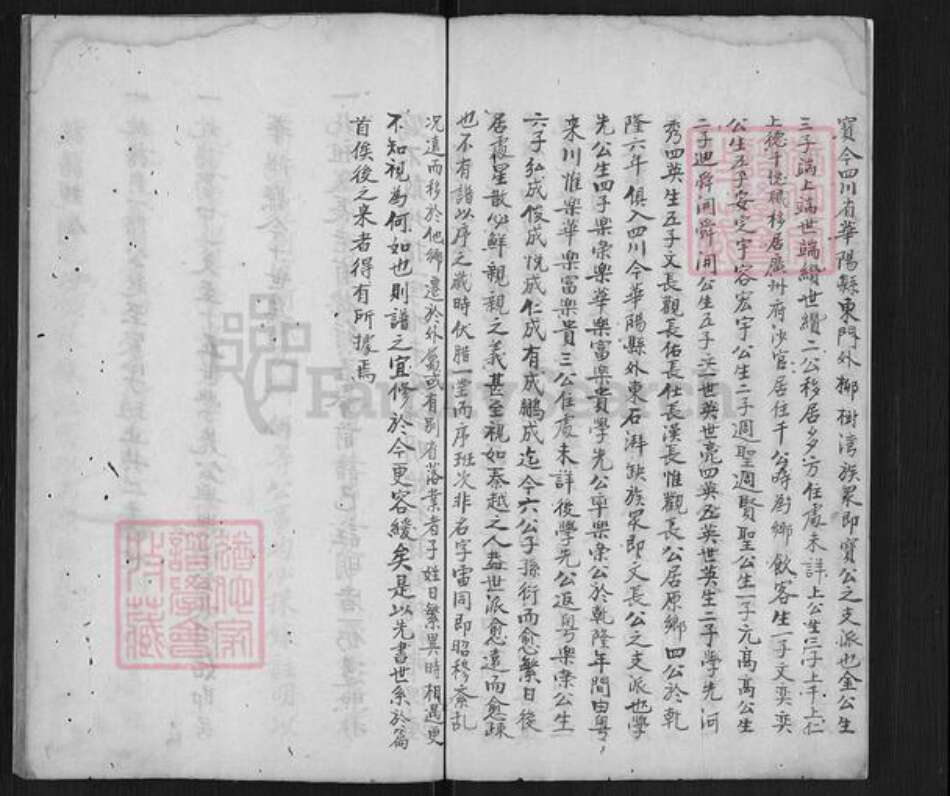 寶今四川省華陽縣東門外柳樹灣族眾即寶公之支派也金公生
三子端上端世端纘世纘二公移居乡方住處未詳上公生三子上千上仁
上德千德穢移居廣州府沙官居住千公時為鄉飲客生一子文奕奕
公生五子安定宇容宏宇公生二子週聖週賢聖公生一子元高高公生
二子迪舜澗舜澗公生五子文一世英世亮四英五英世英生二子學先河
秀四英生五子文長觀長佑長仕長漢長惟觀長公居原鄉四公於乾
隆六年俱入四川今華陽縣外東石湃缺族眾即文長公之支派也學
先公生四子樂寀樂華樂富樂貴學先公率樂寀公於乾隆年間由粵
來川惟樂華樂富樂貴三公住處未詳後學先公返粵樂寀公生
六子弘成俊成悅成仁成有成鵬成迄今六公子孫衍而愈繁日後
居處星散必鮮親親之義甚至視如秦越之人盖世派愈遠而愈踈
也不有譜以序之歲時伏腊一堂而序班次非名字雷同即昭穆紊乱
况遠而移於他鄉遷於外屬或有別省落業者子姓日繁異時相遇更
不知視為何如也則譜之宜修於今更容緩矣是以先書世系於篇
首俟後之来者得有所據焉
FamilySearch